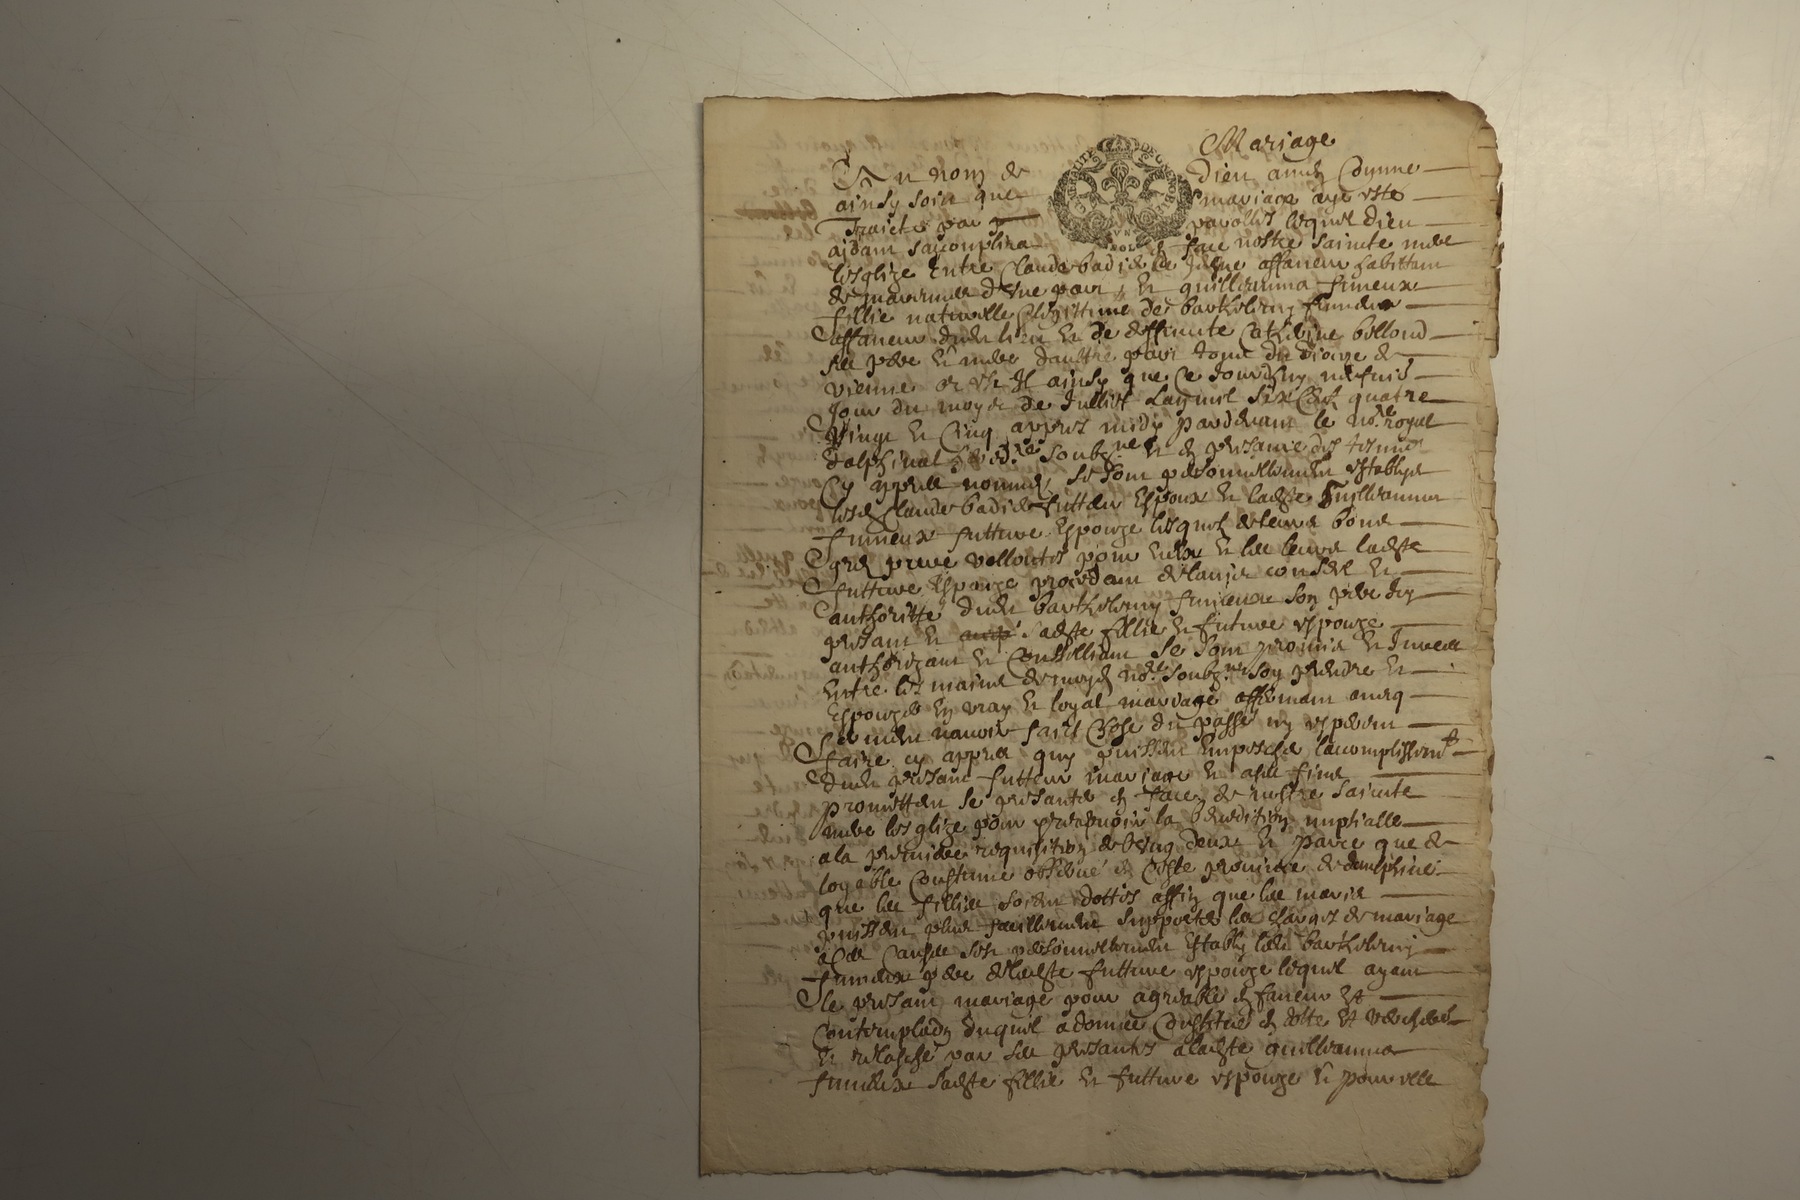 Mariage
Au nom de Dieu amen Comme
ainsy soit que mariage aye esté
Traicté par parolles lequel Dieu
aidant sacomplira en face nostre saincte mere
lesglize Entre Claude badi affaneur habittant
de dune part, Et guillauma fumeux
fillie naturelle & legittime de barthelemy fumeux
affaneur dudit lieu Et de deffuncte Catherine
ses pere Et mere daultre part tous du dioceze de
vienne or est Il ainsy que ce Jourdhuy
Jour du moys de Julliet Lan mil six Cent quatre
vingt Et Cinq appres midy pardevant le no.re royal
dalphinal soubz.ne Et en presance des tesmoins
Cy appres nommes, se sont personnellement establys
lesdits Claude badi futteur Espoux Et ladite Guillauma
fumeux futture Espouze lesquels de leurs bons
gres pures vollontes pour Eulx Et les leurs ladite
futture Espouze proceddant de ladvis conseil Et
authoritté dudit barthelemy fumeux son pere icy
presant Et sadite fillie Et future espouze
authorizant Et Conseilliant se sont promis Et Juré
Entre les mains de moydit no.re soubz.ne soy prendre Et
Espouzer En vray Et loyal mariage affirmant avecq
serment navoir faict Chose du passé ny esperent
faire cy appres quy puissent Empescher lacomplissement
dudit presant futteur mariage Et a ses fins
promettent se presenter en face de nostre saincte
mere lesglize pour persepvoir la benediction nuptialle
a la premiere requisition de lung deux Et parce que de
loyable Coustume observé en Ceste province de dauphiné
que les fillies soient dottés affin que les maris
puissent plus facillement supporter les charges de mariage
a Ces Causes sest personnellement Estably ledit barthelemy
fumeux pere de ladite futture espouze lequel ayant
le presant mariage pour agreable en faveur Et
Contemplaon duquel a donné Constitué en dotte Et
Et relasché par ses presantes a ladite guillauma
fumeux sadite fillie Et futture espouze Et pour elle